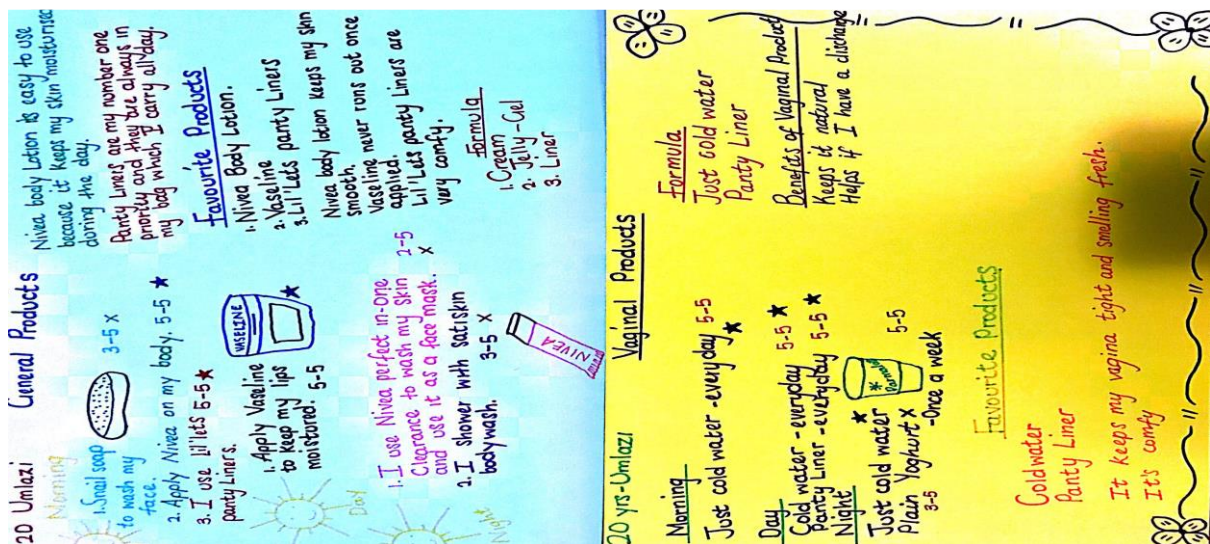 20 Umlazi General Products
Morning
1. Snail soap
to wash my
face.
3-5 x
2. Apply Nivea on my body. 5-5 ★
3. I use lil'lets 5-5 ★
panty Liners.
1. Apply Vaseline
to keep my lips
moistored. 5-5
VASELINE
★
Day
1. I use Nivea perfect in-One
Clearance to wash my skin 2-5
and use it as a face mask. x
2. I shower with satiskin
bodywash. 3-5 x
Night
NIVEA
Nivea body Lotion is easy to use
because it keeps my skin moisturised
during the day.
Panty Liners are my number one
priority and they are always in
my bag which I carry all day.
Favourite Products
1. Nivea Body Lotion.
2. Vaseline
3. Lil'Lets panty Liners
Nivea body lotion keeps my skin
smooth.
Vaseline never runs out once
applied.
Lil'Lets panty Liners are
very comfy.
Formula
1. Cream
2. Jelly-Gel
3. Liner
20 yrs-Umlazi Vaginal Products
Morning
Just cold water -everyday 5-5
★
Day
Cold water -everyday 5-5 ★
Panty Liner -everyday 5-5 ★
Night
Just cold water ★ 5-5
Plain Yoghurt x
3-5 -Once a week
Parmalat
Formula
Just cold water
Panty Liner
Benefits of Vaginal Product
Keeps it natural
Helps if I have a discharge
Favourite Products
Cold water
Panty Liner
It keeps my vagina tight and smelling fresh.
It's comfy